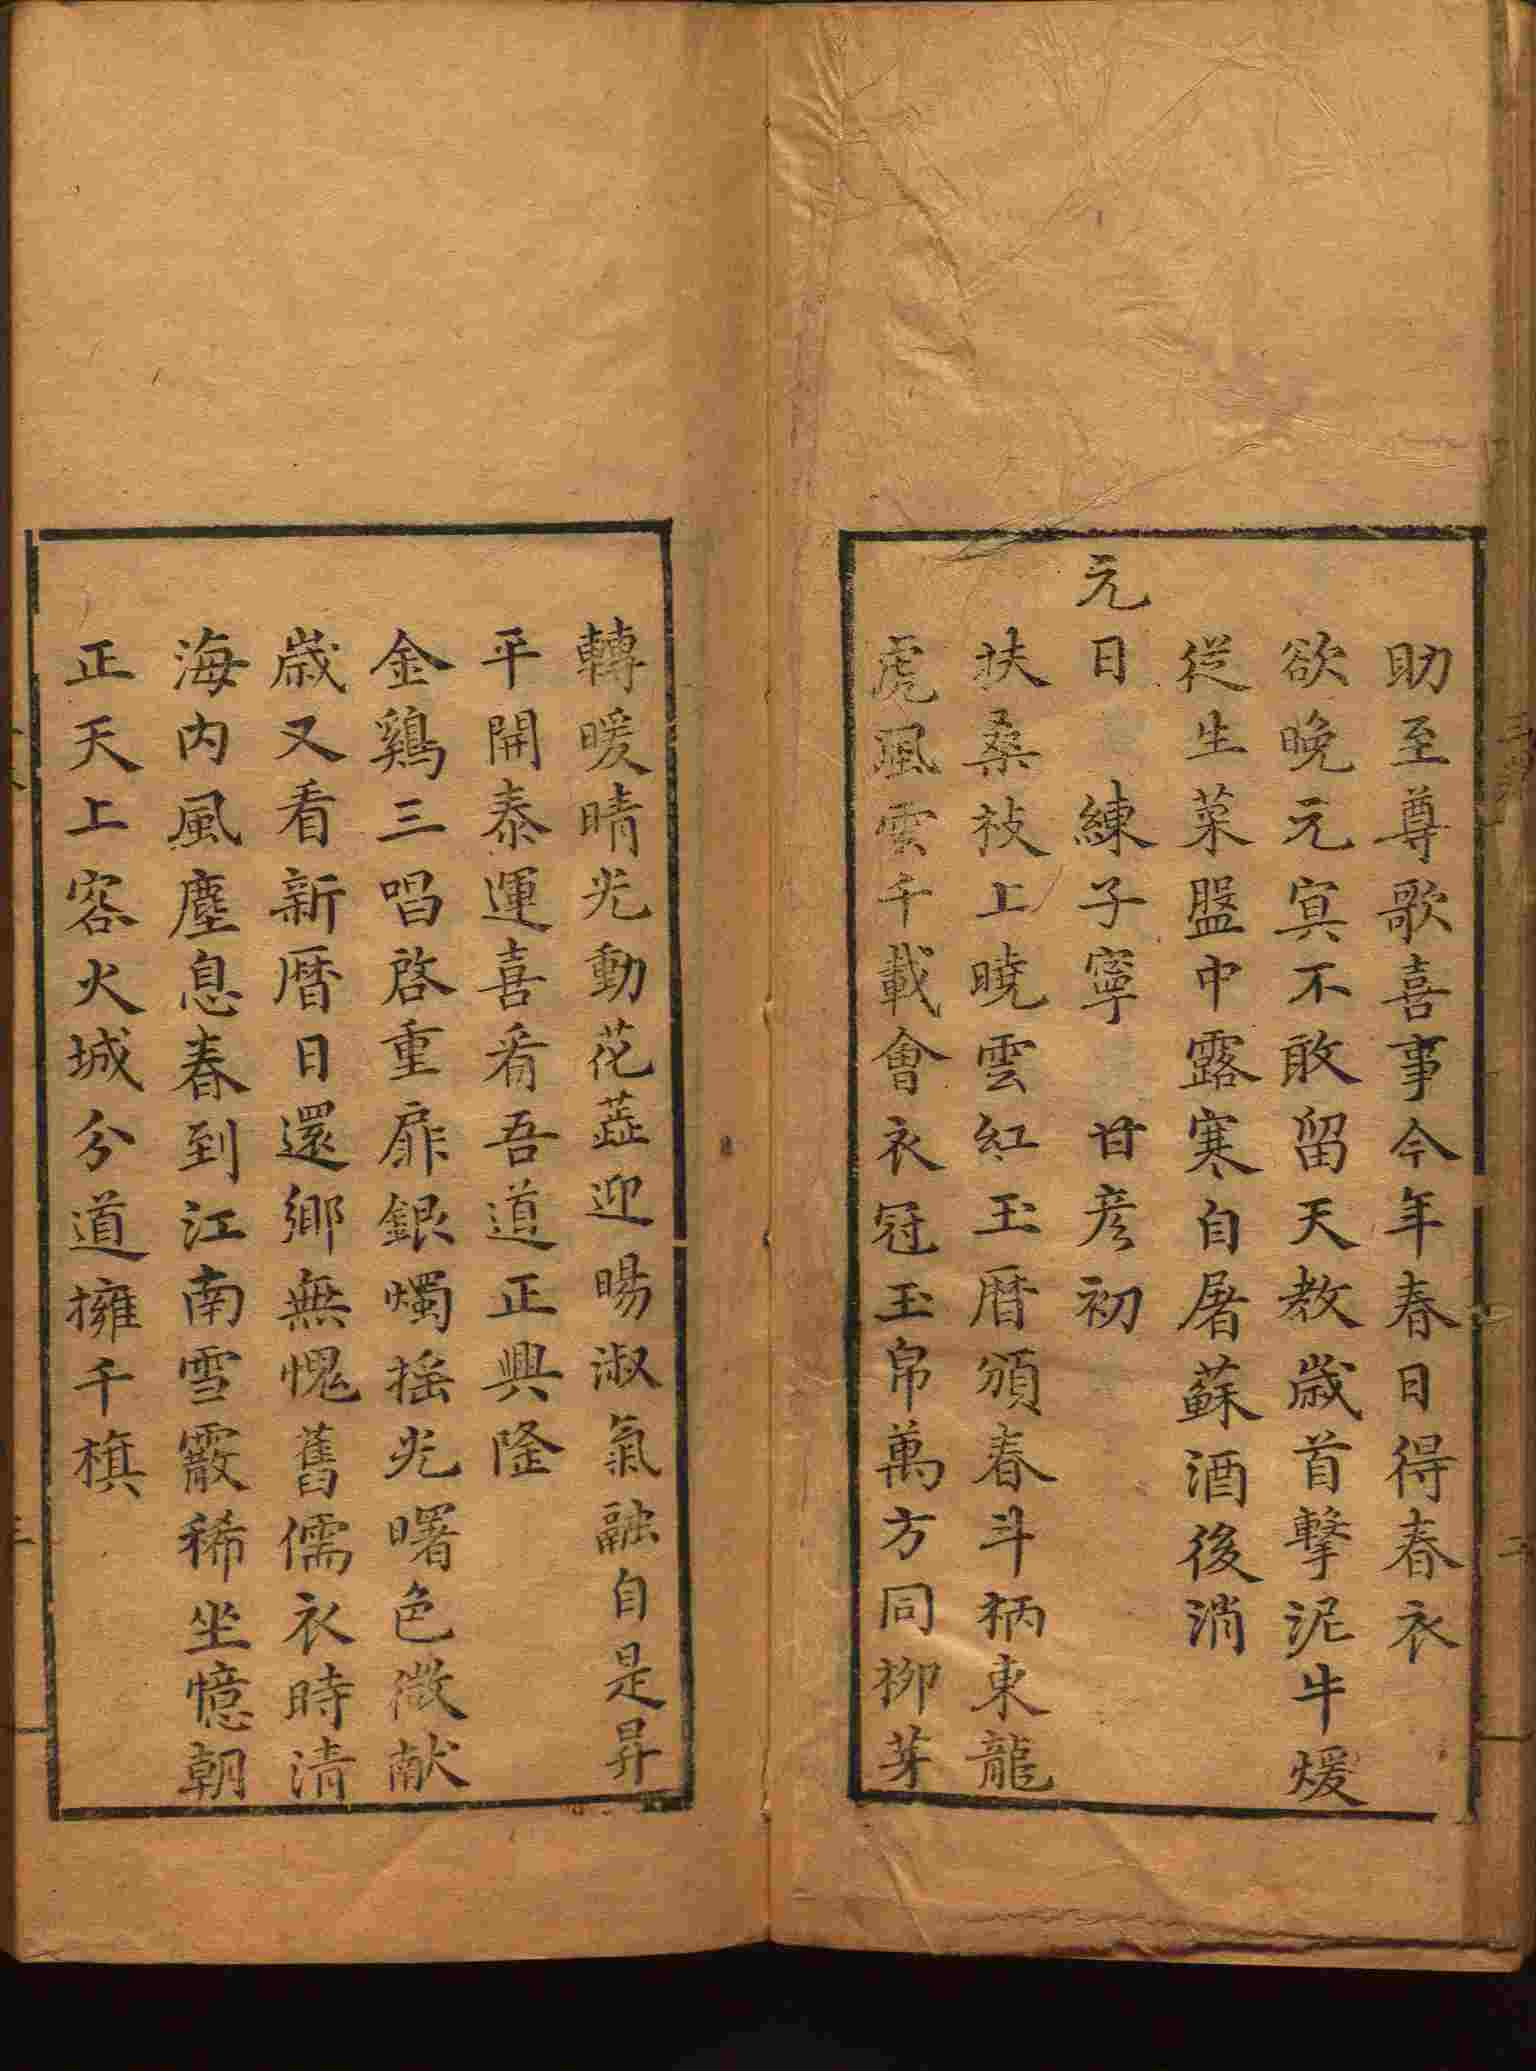 助至尊歌喜事今年春日得春衣
欲晩元㝠不敢留天教歳首擊泥牛煖
從生菜盤中露寒自屠蘇酒後消
元日　練子寧　甘彦初
扶桑枝上曉雲紅玉曆頒春斗柄東龍
虎風雲千載會衣冠玉帛萬方同柳芽
轉暖晴光動花蕋迎暘淑氣融自是昇
平開泰運喜看吾道正興隆
金鷄三唱啓重扉銀燭揺光曙色微献
歳又看新曆日還鄉無愧舊儒衣時清
海内風塵息春到江南雪霰稀坐憶朝
正天上客火城分道擁千旗